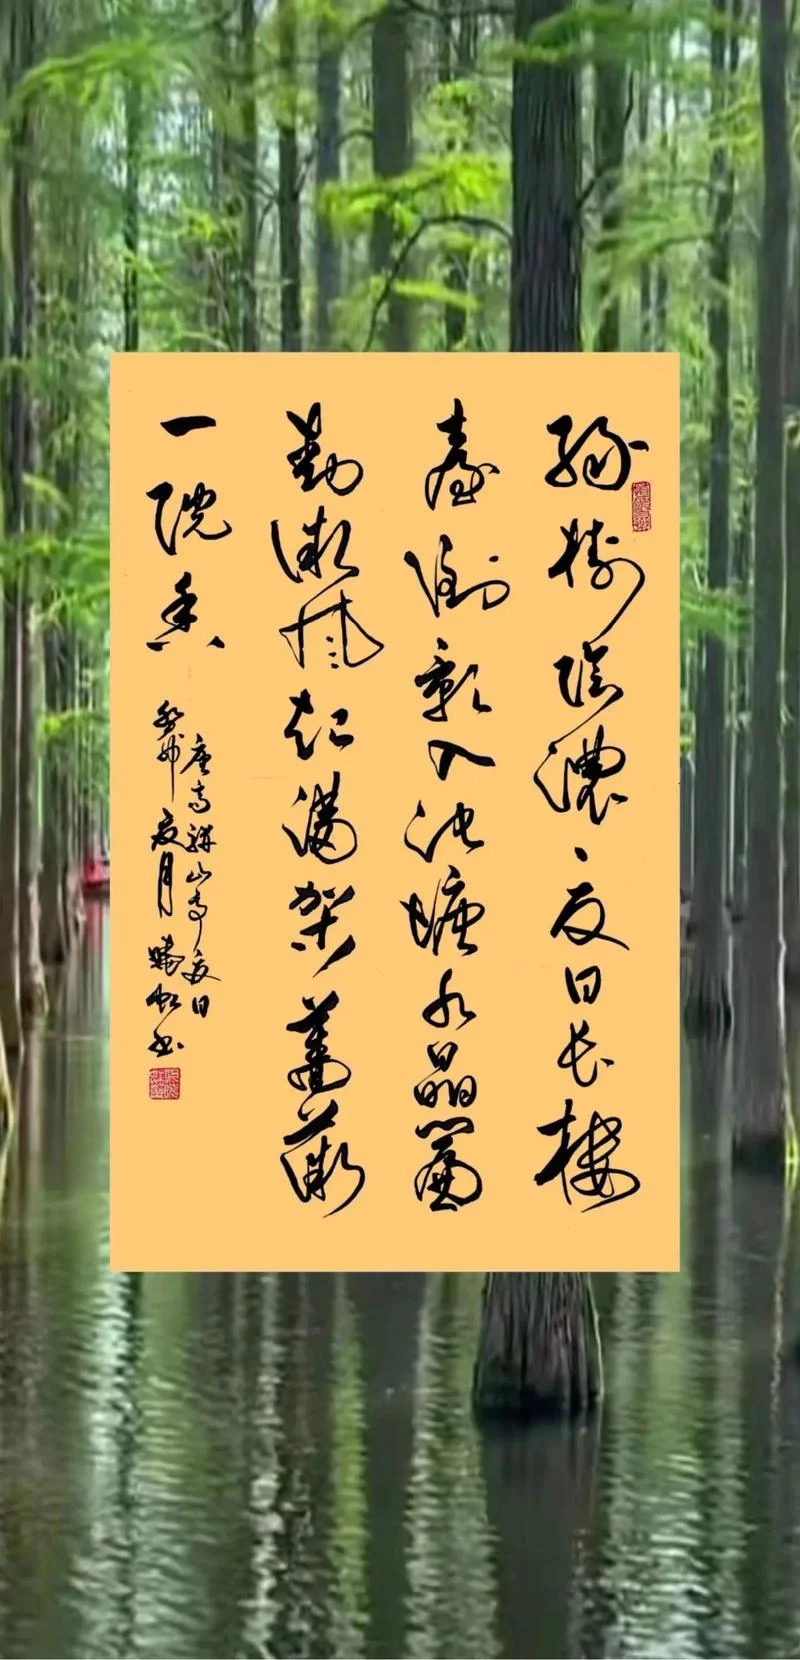 绿树阴浓夏日长楼
臺倒影入池塘水晶簾
動微风起满架蔷薇
一院香
唐高骈山亭夏日
癸卯夏月晓虹书